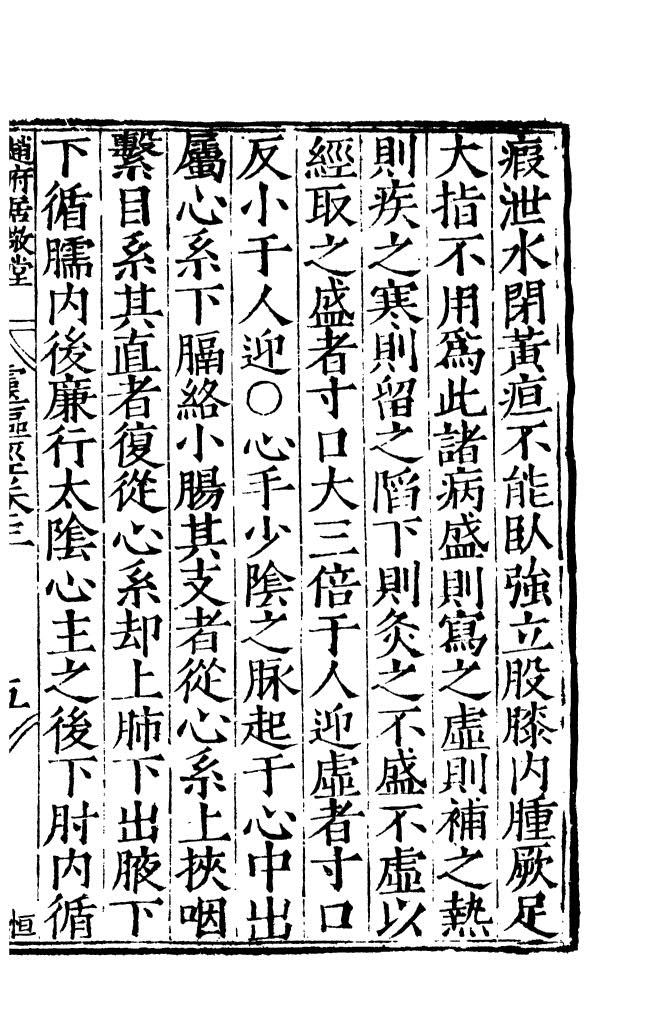 瘕泄水閉黃疸不能臥強立股膝内腫厥足
大指不用爲此諸病盛則寫之虛則補之熱
則疾之寒則留之陷下則灸之不盛不虛以
經取之盛者寸口大三倍于人迎虛者寸口
反小于人迎〇心手少陰之脈起于心中出
屬心系下膈絡小腸其支者從心系上挾咽
繫目系其直者復從心系却上肺下出腋下
下循臑内後廉行太陰心主之後下肘内循
趙府居敬堂 靈樞經卷三 五 恒